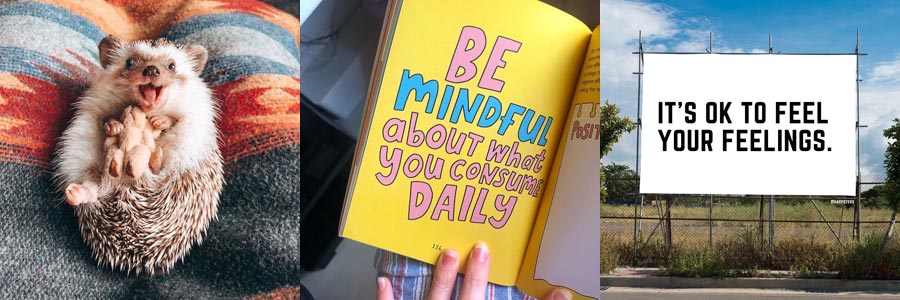 BE
MINDFUL
about what
you CONSUME
DAILY
POSIT
IT'S OK TO FEEL
YOUR FEELINGS.